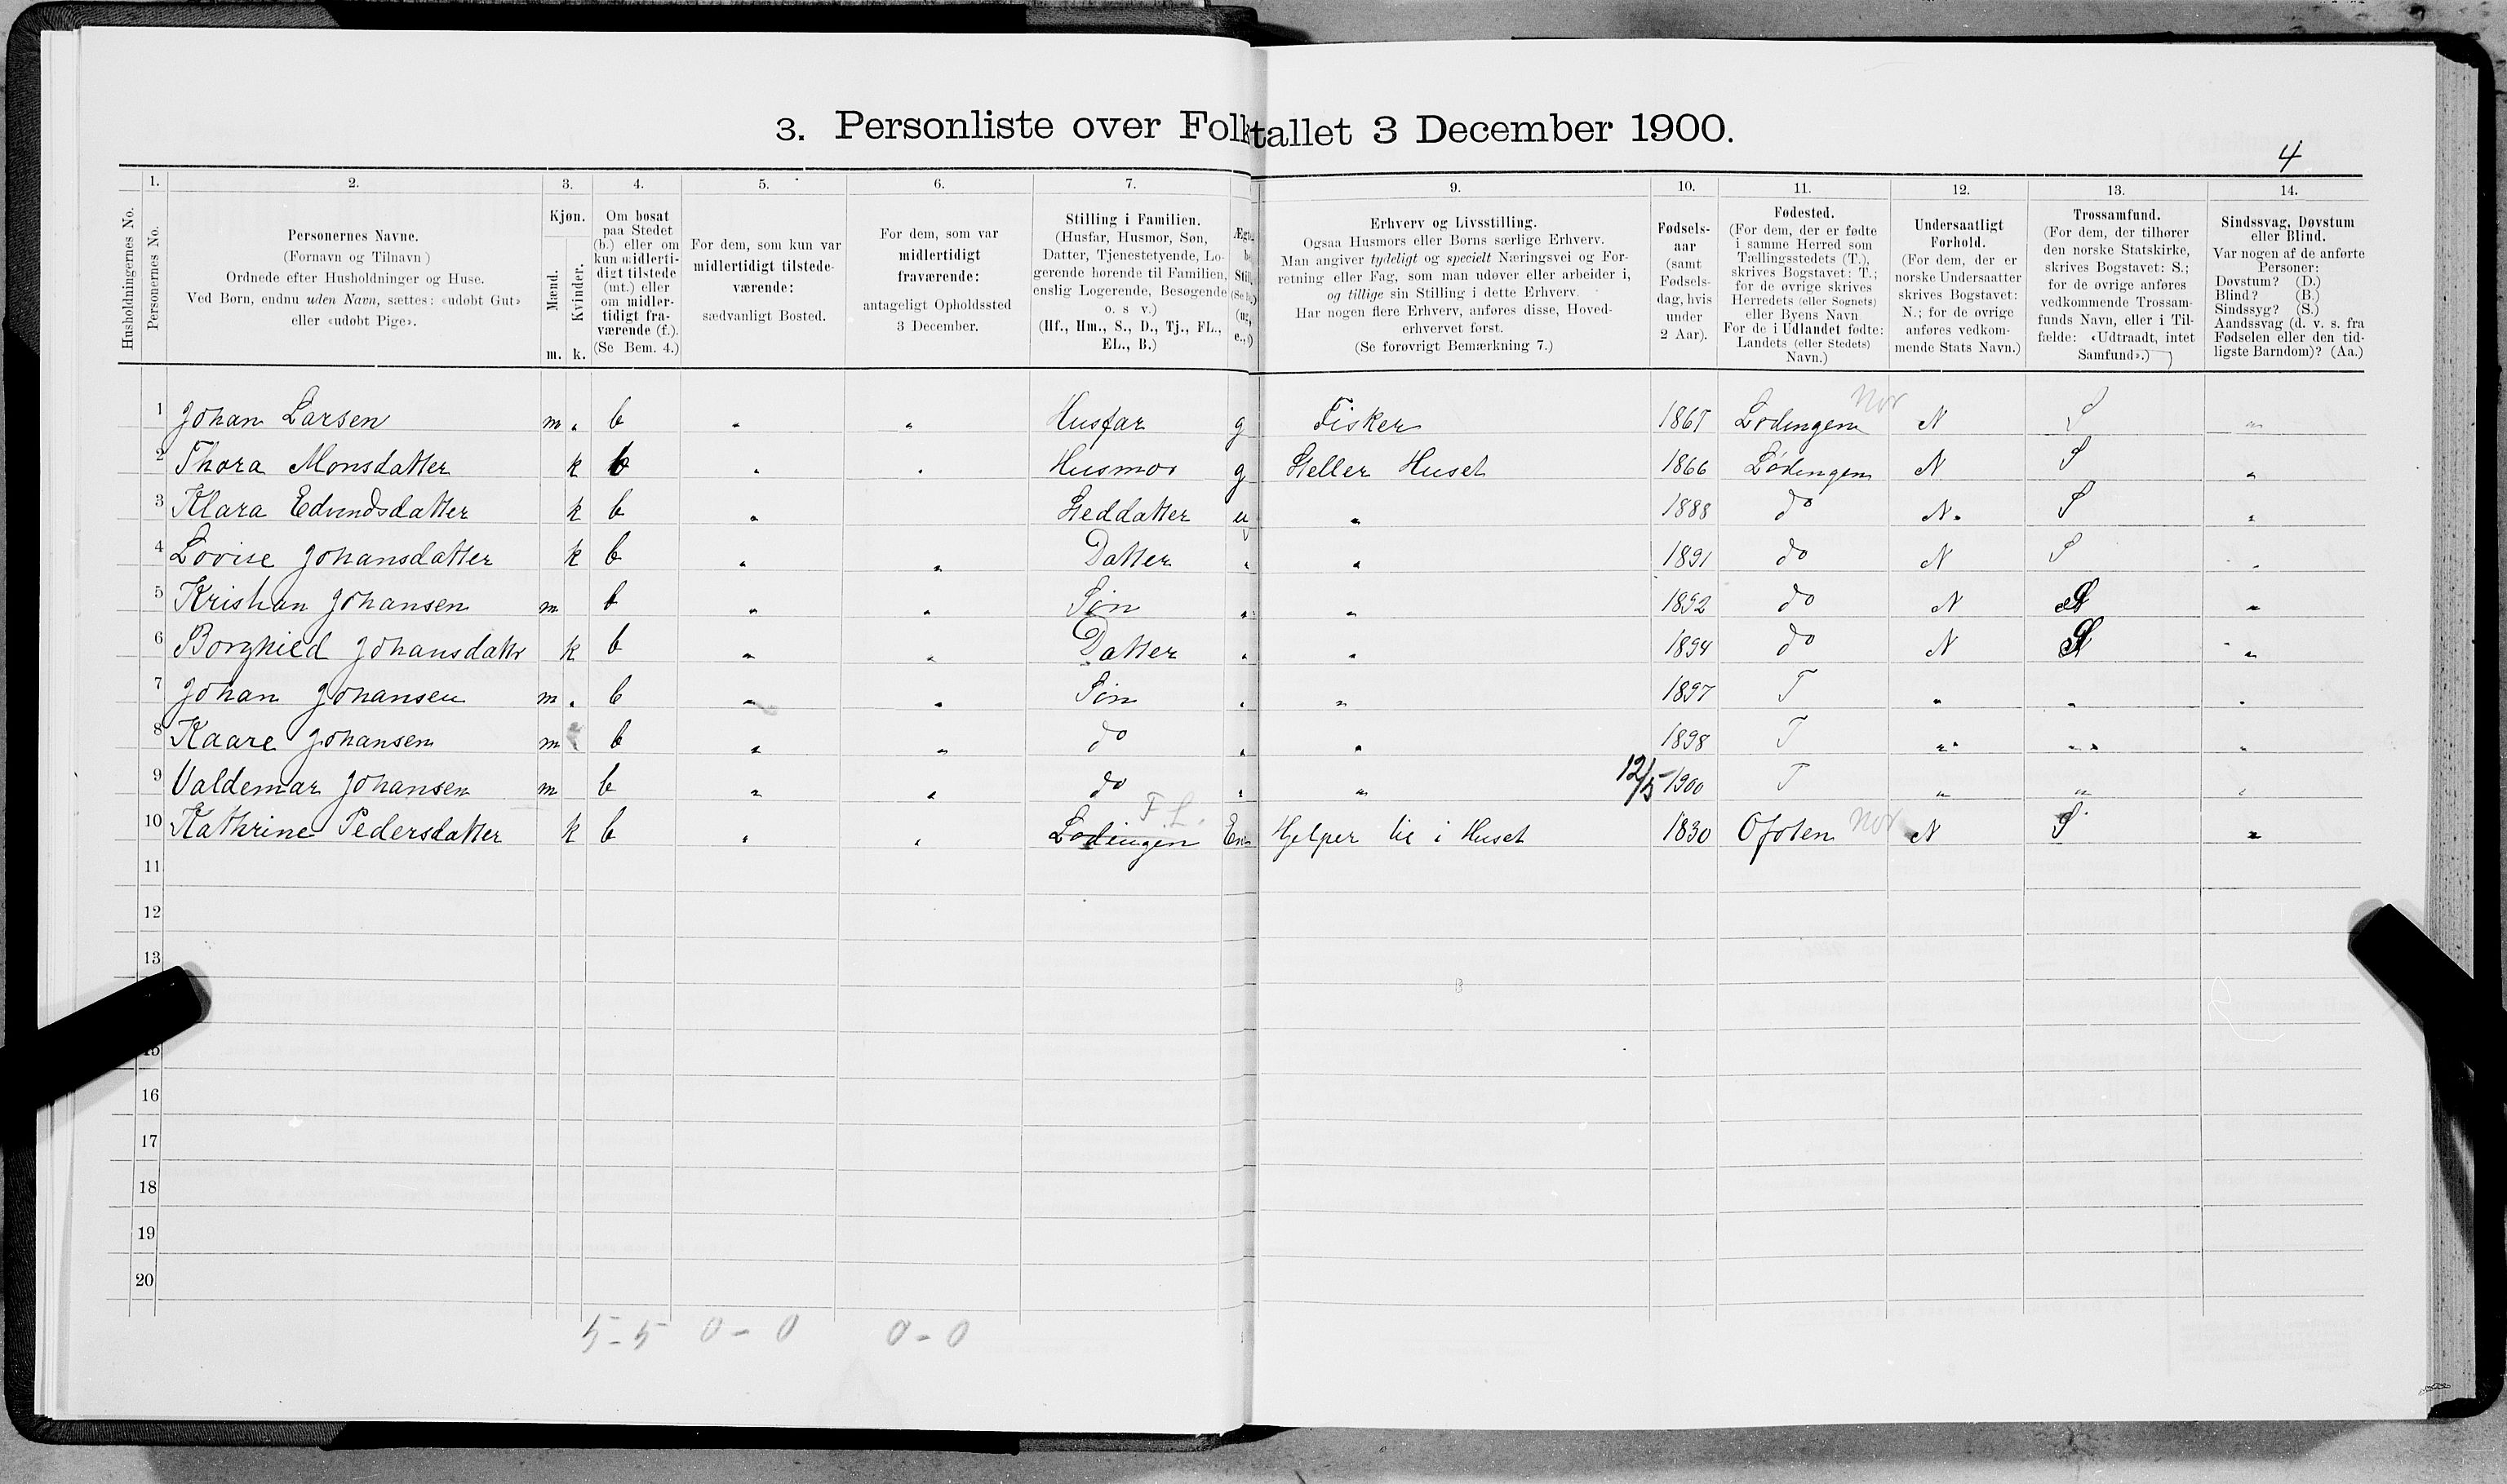 3. Personliste over Folketallet 3 December 1900.
4
1. 2. 3. 4. 5. 6. 7. 9. 10. 11. 12. 13. 14.
Husholdningernes No.
Personernes No.
Personernes Navne.
(Fornavn og Tilnavn)
Ordnede efter Husholdninger og Huse.
Ved Børn, endnu uden Navn, sættes: «udøbt Gut»
eller «udøbt Pige».
Kjøn.
Mænd.
Kvinder.
m. k.
Om bosat
paa Stedet
(b.) eller om
kun midlerti-
digt tilstede
(mt.) eller
om midler-
tidigt fra-
værende (f.).
(Se Bem. 4.)
For dem, som kun var
midlertidigt tilstede-
værende:
sædvanligt Bosted.
For dem, som var
midlertidigt
fraværende:
antageligt Opholdssted
3 December.
Stilling i Familien.
(Husfar, Husmor, Søn,
Datter, Tjenestetyende, Lo-
gerende hørende til Familien,
enslig Logerende, Besøgende
o. s v.)
(Hf., Hm., S., D., Tj., FL.,
EL., B.)
Erhverv og Livsstilling.
Ogsaa Husmors eller Børns særlige Erhverv.
Man angiver tydeligt og specielt Næringsvei og For-
retning eller Fag, som man udøver eller arbeider i,
og tillige sin Stilling i dette Erhverv.
Har nogen flere Erhverv, anføres disse, Hoved-
erhvervet først.
(Se forøvrigt Bemærkning 7.)
Fødsels-
aar
(samt
Fødsels-
dag, hvis
under
2 Aar).
Fødested.
(For dem, der er fødte
i samme Herred som
Tællingsstedets (T.),
skrives Bogstavet: T.;
for de øvrige skrives
Herredets (eller Sognets)
eller Byens Navn
For de i Udlandet fødte:
Landets (eller Stedets)
Navn.)
Undersaatligt
Forhold.
(For dem, der er
norske Undersaatter
skrives Bogstavet:
N.; for de øvrige
anføres vedkom-
mende Stats Navn.)
Trossamfund.
(For dem, der tilhører
den norske Statskirke,
skrives Bogstavet: S.;
for de øvrige anføres
vedkommende Trossam-
funds Navn, eller i Til-
fælde: «Udtraadt, intet
Samfund».)
Sindssvag, Døvstum
eller Blind.
Var nogen af de anførte
Personer:
Døvstum? (D.)
Blind? (B.)
Sindssyg? (S.)
Aandssvag (d. v. s. fra
Fødselen eller den tid-
ligste Barndom)? (Aa.)
1 Johan Larsen m. b " " Husfar g Fisker Lødingen Nor N S "
2 Thora Monsdatter k b " " Husmor g Steller Huset 1866 Lødingen N S "
3 Klara Edvindsdatter k b " Steddatter u " 1888 do N. S "
4 Lovise Johansdatter k b " " Datter " " 1891 do N S "
5 Kristian Johansen m b " " Søn " " 1892 do N S "
6 Borghied Johansdatter k b " " Datter " " 1894 do N S "
7 Johan Johansen m b " " Søn " " 1897 T " " "
8 Kaare Johansen m b " " do " " 1898 T " " "
9 Valdemar Johansen m b " " do " " 12/5 1900 T " " "
10 Kathrine Pedersdatter k b " " Lødingen F.L. Hjelper til i Huset 1830 Ofoten Nor N S "
11
12
13
15
16
17
18
19
20
5-5 0-0 0-0